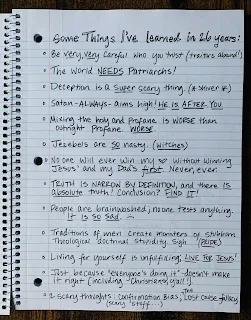 Some Things I've learned in 26 years:
• Be very, very careful who you trust (traitors abound!)
• The world NEEDS Patriarchs!
• Deception is a super scary thing. (* shiver *)
• Satan - ALWAYS - aims high! HE IS AFTER YOU
• Mixing the holy and profane IS WORSE than
outright profane. WORSE.
• Jezebels are so nasty. (witches)
• No one will ever win my ♡ without winning
Jesus' and my Dad's first. Never, ever.
• TRUTH IS NARROW BY DEFINITION, and there IS
absolute truth! Conclusion? FIND IT!
• People are brainwashed; no one tests anything.
It is so sad.
• Traditions of men create monsters of stubborn
Theological doctrinal stupidity. Sigh. (PRIDE)
• Living for yourself is unfulfilling; LIVE FOR JESUS!
• Just because "everyone's doing it" doesn't make
it right (including "Christians", y'all!)
• 2 scary thoughts: confirmation bias, and lost cause fallacy
(scary stuff...)